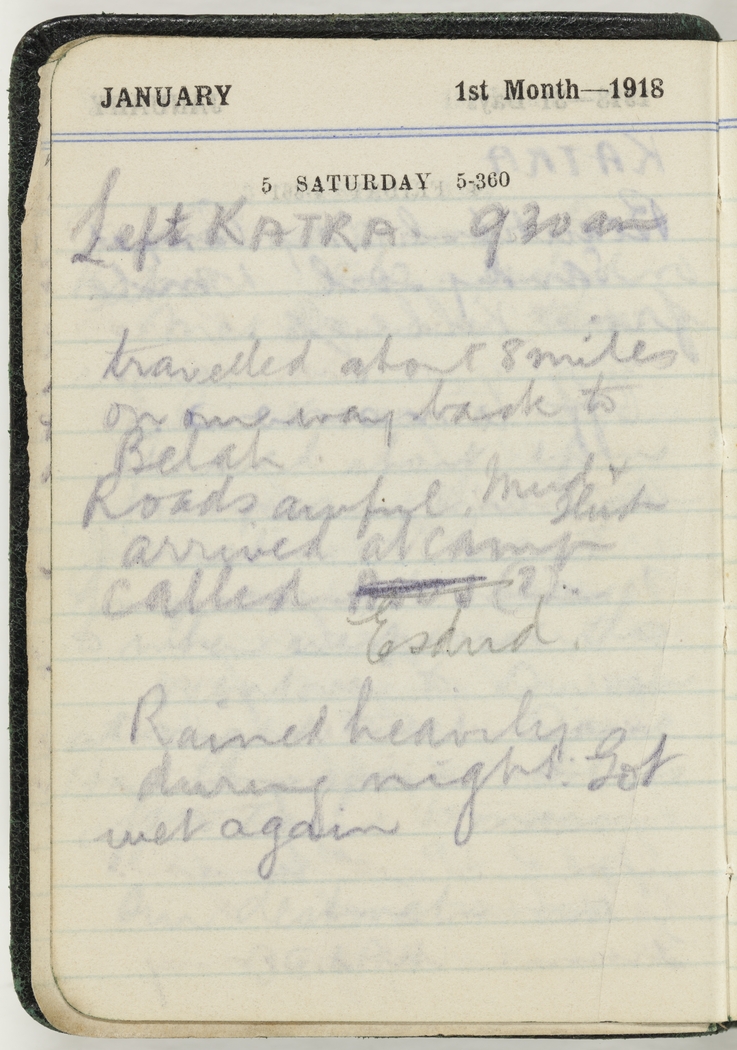 JANUARY 1st Month—1918
5 SATURDAY 5-360
Left KATRA 930 am
travelled about 8 miles
on our way back to
Belah
Roads awful. Mud &
slush
arrived at camp
called (?).
Esdud.
Rained heavily
during night. Got
wet again